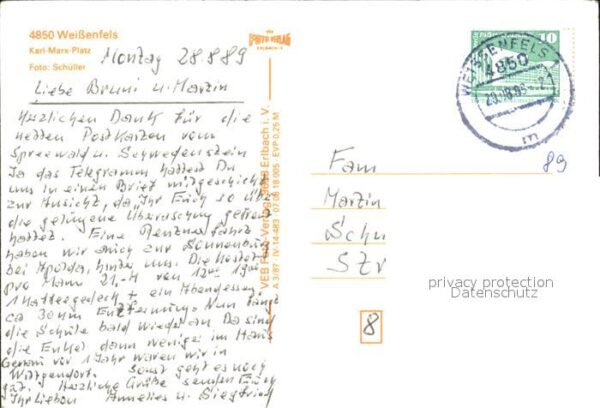 4850 Weißenfels
Karl-Marx-Platz
Foto: Schüller
Montag 28.8.89
Liebe Bruni u. Martin
Herzlichen Dank für die
netten Postkarten vom
Spreewald u. Schwedenstein
Ja das Telegramm hattet Du
uns in einen Brief mitgeschickt
zur Ansicht, da Ihr Euch so über
die gelungene Überraschung gefreut
hattet. Eine Rentnerfahrt
haben wir auch zur Sonnenburg
bei Apolda, hinter uns. Die kostete
pro Mann 21,-M von 12⁰⁰ 19⁰⁰
1 Kaffeegedeck + ein Abendessen.
ca 30 km Entfernung. Nun fängt
die Schule bald wieder an. Da sind
die Enkel dann wenig im Haus
Genau vor 1 Jahr waren wir in
Wittgendorf. Sonst geht es noch
gut. Herzliche Grüße senden Euch
Ihr Lieben Annelies u. Siegfried
VEB Foto-Verlag Erlbach i. V.
A 3/87 IV-14-483 07 06 18 005 EVP 0,25 M
FOTO VERLAG
ERLBACH
10
WEISSENFELS
4850
28.-8.89-11
m
89
Fam
Martin
Schu
Str
8
privacy protection
Datenschutz